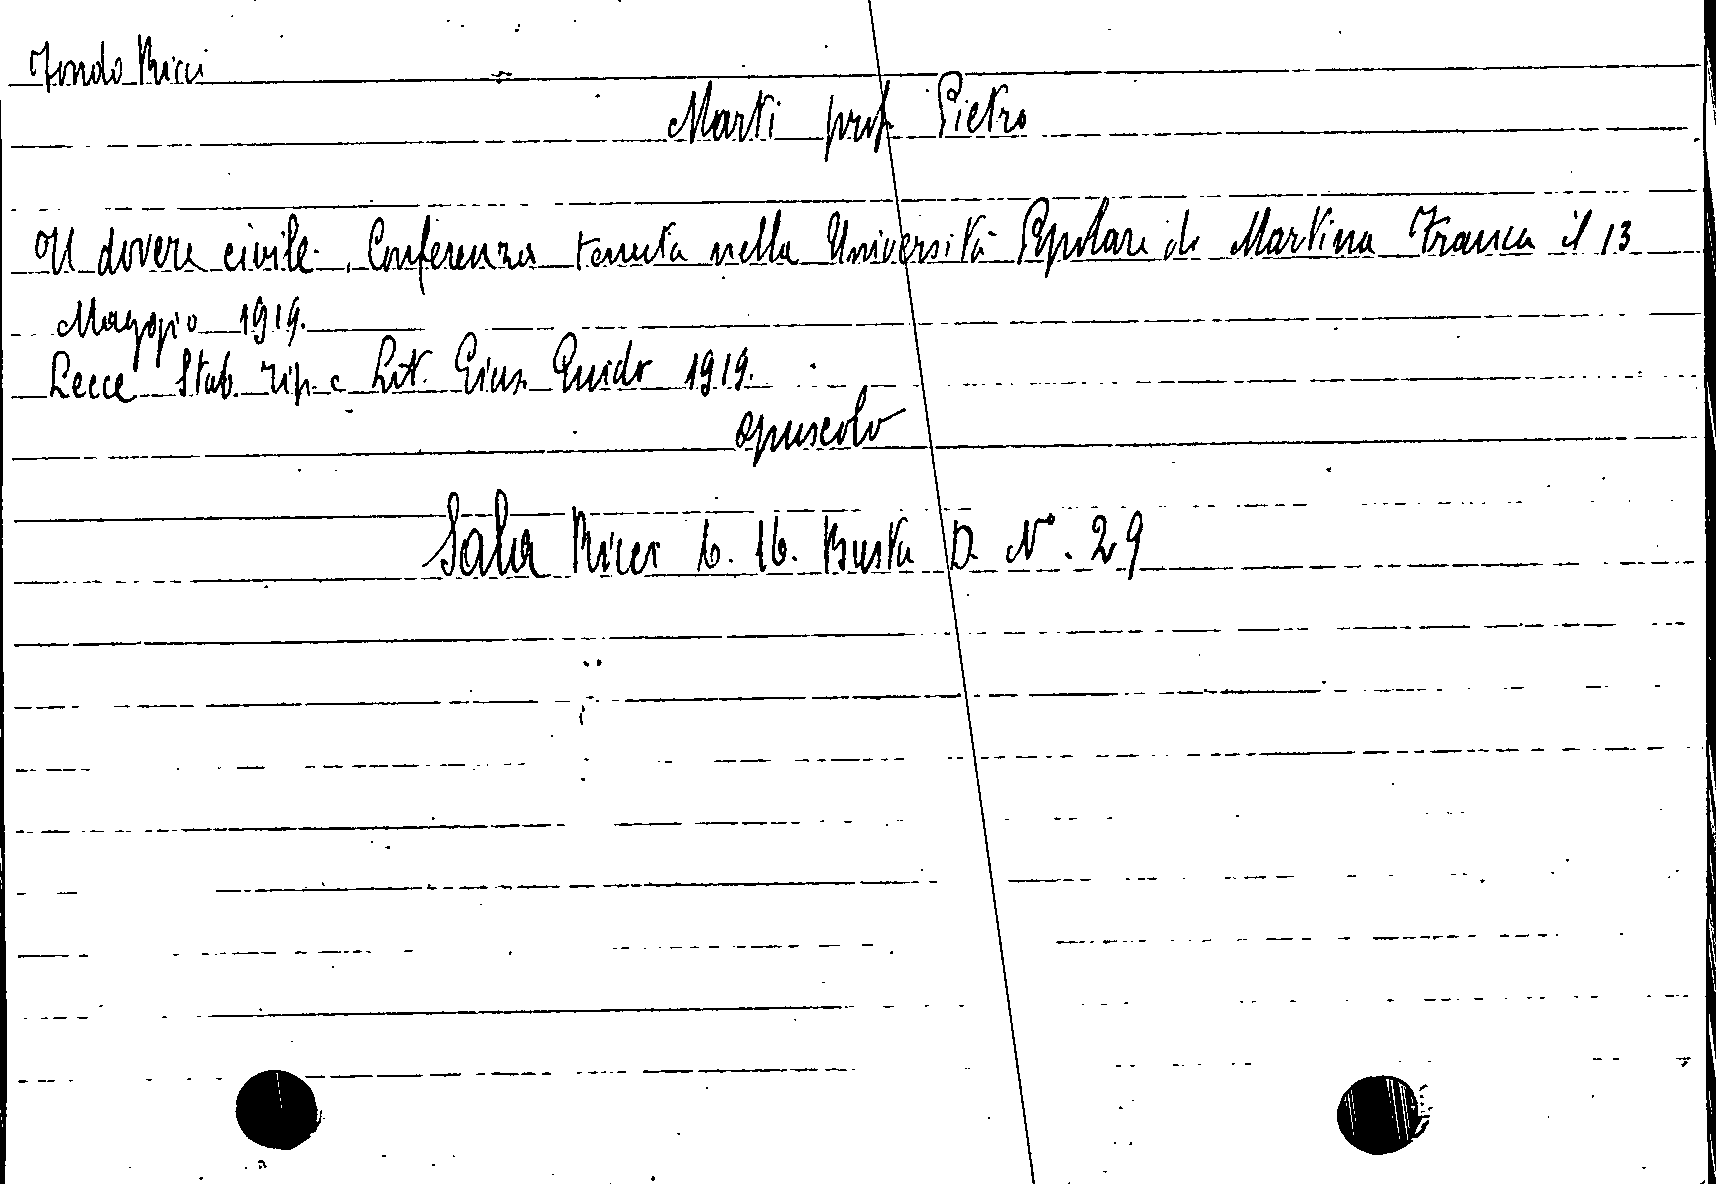 Fondo Ricci
Marti prof Pietro
Il dovere civile. Conferenza tenuta nella Università Popolare di Martina Franca il 13
Maggio 1919.
Lecce Stab. Tip. e Lit. Gius. Guido 1919.
opuscolo
Sala Ricci 6. 16. Busta D. N° . 29